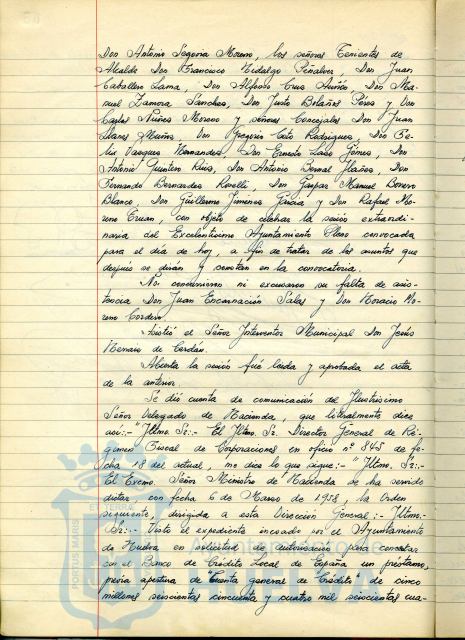 Don Antonio Segovia Moreno, los señores Tenientes de
Alcalde Don Francisco Hidalgo Peñalver, Don Juan
Caballero Lama, Don Alfonso Cruz Auñón, Don Ma-
nuel Zamora Sánchez, Don Justo Bolaños Pérez y Don
Carlos Núñez Moreno y señores Concejales Don Juan
Llanes Muñiz, Don Gregorio Coto Rodríguez, Don Fe-
lix Vázquez Hernández, Don Ernesto Lazo Gómez, Don
Antonio Quintero Rius, Don Antonio Bernal Ibáñez, Don
Fernando Bernardez Rovelli, Don Gaspar Manuel Borrero
Blanco, Don Guillermo Jimenez García y Don Rafael Mo-
reno con objeto de celebrar la sesión extraordi-
naria del Excelentísimo Ayuntamiento Pleno convocada
para el día de hoy, a fin de tratar de los asuntos que
después se dirán y constan en la convocatoria.
No concurrieron ni excusaron su falta de asis-
tencia Don Juan Encarnación Salas y Don Horacio Mo-
reno Cordero.
Asistió el Señor Interventor Municipal Don Jesús
de Cerdán.
Abierta la sesión fué leida y aprobada el acta
de la anterior.
Se dió cuenta de comunicación del Ilustrísimo
Señor Delegado de Hacienda, que literalmente dice
así:- "Iltmo Sr:- El Iltmo. Sr. Director General de Ré-
gimen Fiscal de Corporaciones en oficio nº 845 de fe-
cha 18 del actual, me dice lo que sigue:- "Iltmo. Sr:-
El Excmo. Señor Ministro de Hacienda se ha servido
dictar, con fecha 6 de Marzo de 1958, la Orden
siguiente, dirigida a esta Dirección General:- Iltmo.-
Sr:- Visto el expediente incoado por el Ayuntamiento
de Huelva en solicitud de autorización para concertar
con el Banco de Crédito Local de España un préstamo,
previa apertura de "Cuenta general de Crédito" de cinco
millones seiscientas cincuenta y cuatro mil seiscientas cua-
PORTUS MARIS
ET TERRÆ